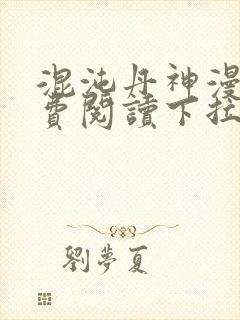 混沌丹神漫
費閱讀下拉
劉夢夏